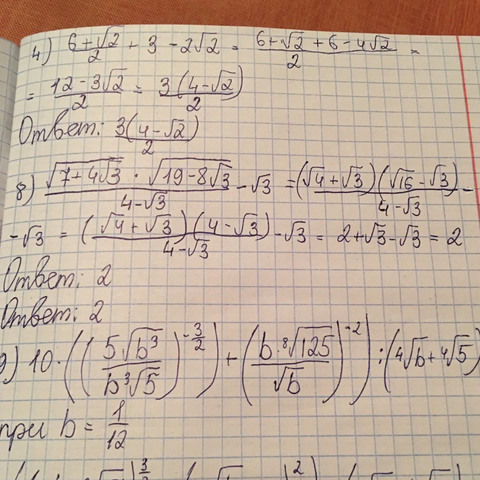 4) (6+√2)/2 + 3 − 2√2 = (6+√2+6−4√2)/2 =
= (12−3√2)/2 = 3(4−√2)/2
Ответ: 3(4−√2)/2
8) (√(7+4√3) · √(19−8√3))/(4−√3) − √3 = (√4+√3)(√16−√3)/(4−√3) −
−√3 = (√4+√3)(4−√3)/(4−√3) − √3 = 2+√3−√3 = 2
Ответ: 2
Ответ: 2
9) 10·(((5√b³)/(b³√5))^(−3/2)) + ((b·⁸√125)/√b)^(−2)) : (⁴√b+⁴√5)
при b = 1/12